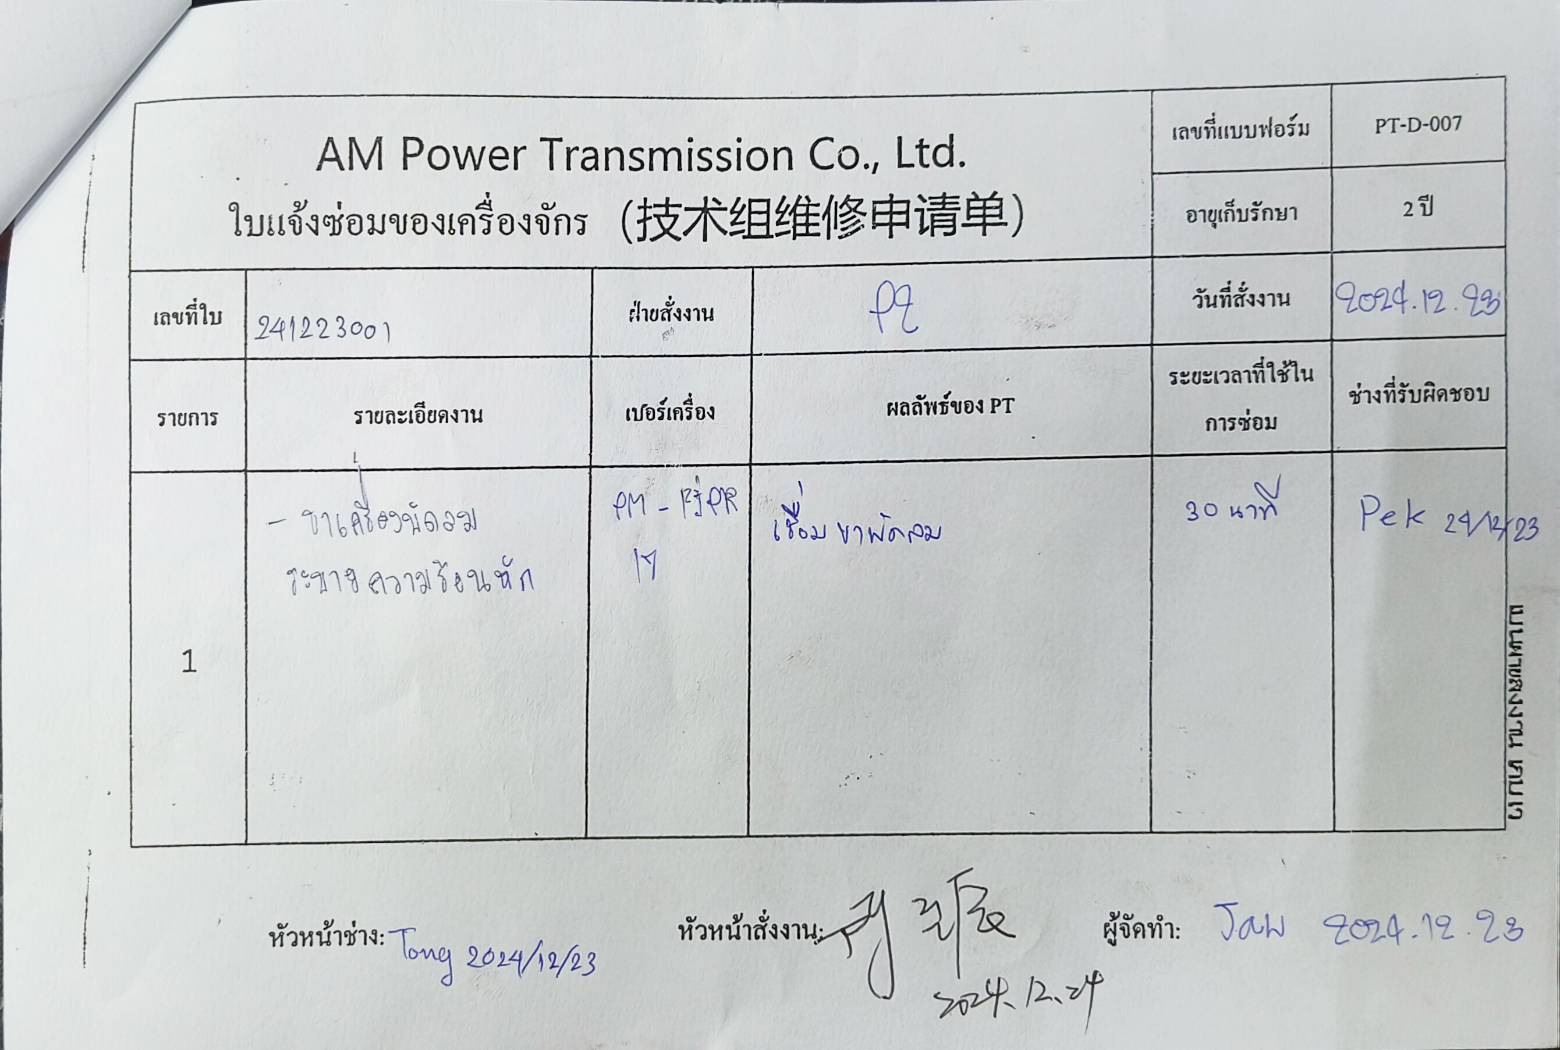 AM Power Transmission Co., Ltd.
ใบแจ้งซ่อมของเครื่องจักร (技术组维修申请单)
เลขที่แบบฟอร์ม PT-D-007
อายุเก็บรักษา 2 ปี
เลขที่ใบ 241223001 ฝ่ายสั่งงาน PZ วันที่สั่งงาน 2024.12.23
รายการ รายละเอียดงาน เบอร์เครื่อง ผลลัพธ์ของ PT ระยะเวลาที่ใช้ใน ช่างที่รับผิดชอบ
การซ่อม
1 - ขาเครื่องพัดลม เชื่อม ขาพัดลม 30 นาที Pek 24/12/23
ระบายความร้อนหัก
หัวหน้าช่าง: Tong 2024/12/23
หัวหน้าสั่งงาน:
2024.12.24
ผู้จัดทำ: Jaw 2024.12.23